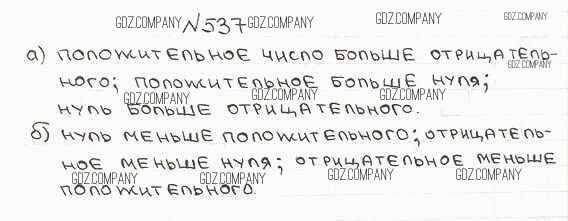 GDZ.COMPANY №537 GDZ.COMPANY GDZ.COMPANY GDZ.COMPANY
а) ПОЛОЖИТЕЛЬНОЕ ЧИСЛО БОЛЬШЕ ОТРИЦАТЕЛЬ-
GDZ.COMPANY
НОГО; ПОЛОЖИТЕЛЬНОЕ БОЛЬШЕ НУЛЯ;
GDZ.COMPANY GDZ.COMPANY GDZ.COMPANY
НУЛЬ БОЛЬШЕ ОТРИЦАТЕЛЬНОГО.
б) НУЛЬ МЕНЬШЕ ПОЛОЖИТЕЛЬНОГО; ОТРИЦАТЕЛЬ-
НОЕ МЕНЬШЕ НУЛЯ; ОТРИЦАТЕЛЬНОЕ МЕНЬШЕ
GDZ.COMPANY GDZ.COMPANY GDZ.COMPANY GDZ.COMPANY
ПОЛОЖИТЕЛЬНОГО.